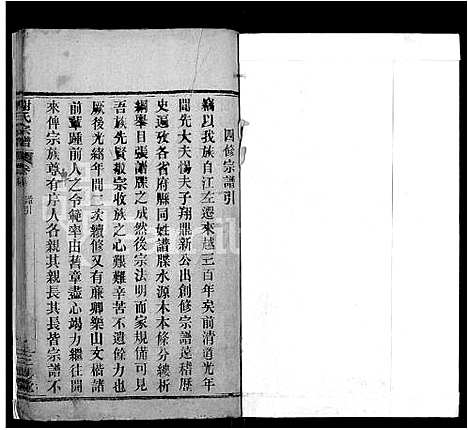 四修宗譜引
竊以我族自江左遷來越三百年矣前清道光年
間先大夫惕夫子翔鼎新公出創修宗譜遠稽歷
史遍效各省府縣同姓譜牒水源木本條分縷析
綱舉目張譜牒之成然後宗法明而家規備可見
吾族先賢敬宗收族之心艱難辛苦不遺餘力也
厥後光緒年間二次續修又有廉卿樂山文楷諸
前輩踵前人之令範率由舊章盡心竭力繼往開
來俾宗族尊卑有序人各親其親長其長皆宗譜不
氏宗譜
譜引